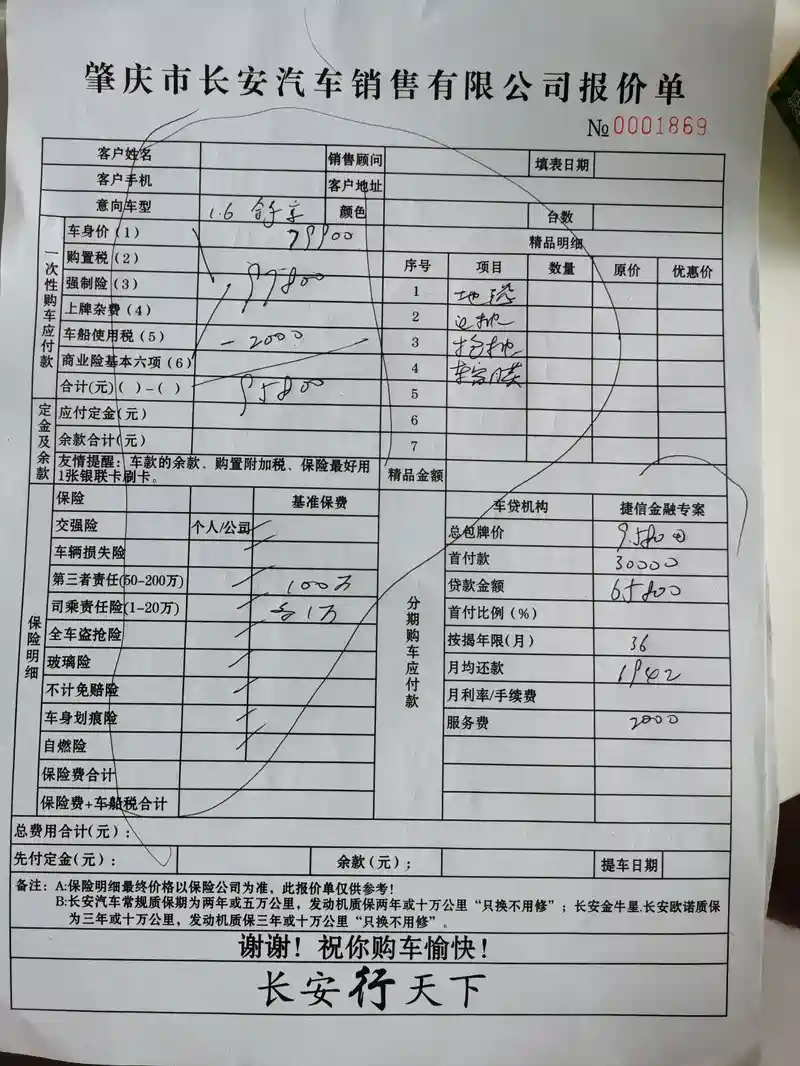 肇庆市长安汽车销售有限公司报价单
№0001869
客户姓名 销售顾问 填表日期
客户手机 客户地址
意向车型 1.6 颜色 台数
一次性购车应付款
车身价(1) 79900
购置税(2) 97800
强制险(3)
上牌杂费(4)
车船使用税(5) -2000
商业险基本六项(6)
合计(元)( )-( ) 95800
精品明细
序号 项目 数量 原价 优惠价
1
2
3
4
5
6
7
精品金额
定金及余款
应付定金(元)
余款合计(元)
友情提醒:车款的余款、购置附加税、保险最好用
1张银联卡刷卡。
保险明细
保险 基准保费
交强险 个人/公司
车辆损失险
第三者责任(50-200万) 100万
司乘责任险(1-20万) 1万
全车盗抢险
玻璃险
不计免赔险
车身划痕险
自燃险
保险费合计
保险费+车船税合计
分期购车应付款
车贷机构 捷信金融专案
总包牌价
首付款 30000
贷款金额 65800
首付比例(%)
按揭年限(月) 36
月均还款 1942
月利率/手续费
服务费 2000
总费用合计(元):
先付定金(元): 余款(元); 提车日期
备注: A:保险明细最终价格以保险公司为准,此报价单仅供参考!
B:长安汽车常规质保期为两年或五万公里,发动机质保两年或十万公里“只换不用修”;长安金牛星.长安欧诺质保
为三年或十万公里,发动机质保三年或十万公里“只换不用修”。
谢谢!祝你购车愉快!
长安行天下